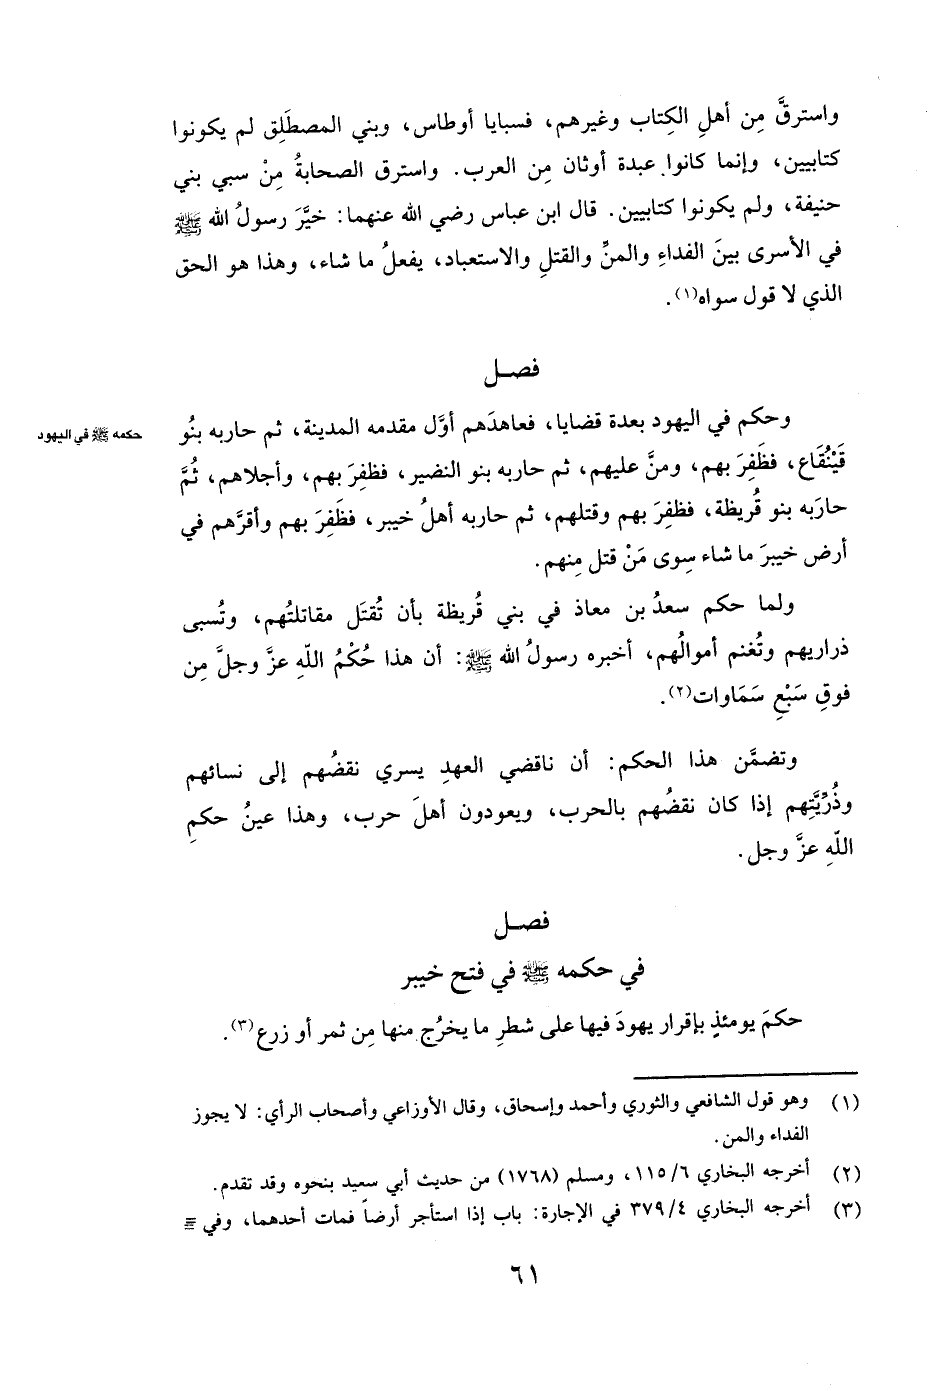 واسترقَّ مِن أهلِ الكِتاب وغيرهم، فسبايا أوطاس، وبني المصطَلِق لم يكونوا
كتابيين، وإنما كانوا عبدة أوثان مِن العرب. واسترق الصحابةُ مِنْ سبي بني
حنيفة، ولم يكونوا كتابيين. قال ابن عباس رضي الله عنهما: خيَّرَ رسولُ الله ﷺ
في الأسرى بينَ الفداءِ والمنِّ والقتلِ والاستعباد، يفعلُ ما شاء، وهذا هو الحق
الذي لا قول سواه(١).
فصـل
وحكم في اليهود بعدة قضايا، فعاهدَهم أوَّل مقدمه المدينة، ثم حاربه بنُو
حكمه ﷺ في اليهود
قَيْنُقَاع، فظَفِرَ بهم، ومنَّ عليهم، ثم حاربه بنو النضير، فظفِرَ بهم، وأجلاهم، ثُمَّ
حارَبه بنو قُريظة، فظفِرَ بهم وقتلهم، ثم حاربه أهلُ خيبر، فظَفِرَ بهم وأقرَّهم في
أرض خيبرَ ما شاء سِوى مَنْ قتل مِنهم.
ولما حكم سعدُ بن معاذ في بني قُريظة بأن تُقتَل مقاتلتُهم، وتُسبى
ذراريهم وتُغنم أموالُهم، أخبره رسولُ الله ﷺ: أن هذا حُكْمُ اللّهِ عزَّ وجلَّ مِن
فوقِ سَبْعِ سَمَاوات(٢).
وتضمَّن هذا الحكم: أن ناقضي العهدِ يسري نقضُهم إلى نسائهم
وذُرِّيَّتِهم إذا كان نقضُهم بالحرب، ويعودون أهلَ حرب، وهذا عينُ حكمِ
اللّهِ عزَّ وجل.
فصـل
في حكمه ﷺ في فتح خيبر
حكمَ يومئذٍ بإقرار يهودَ فيها على شطرِ ما يخرُج منها مِن ثمر أو زرع(٣).
(١) وهو قول الشافعي والثوري وأحمد وإسحاق، وقال الأوزاعي وأصحاب الرأي: لا يجوز
الفداء والمن.
(٢) أخرجه البخاري ١١٥/٦، ومسلم (١٧٦٨) من حديث أبي سعيد بنحوه وقد تقدم.
(٣) أخرجه البخاري ٣٧٩/٤ في الإجارة: باب إذا استأجر أرضاً فمات أحدهما، وفي =
٦١